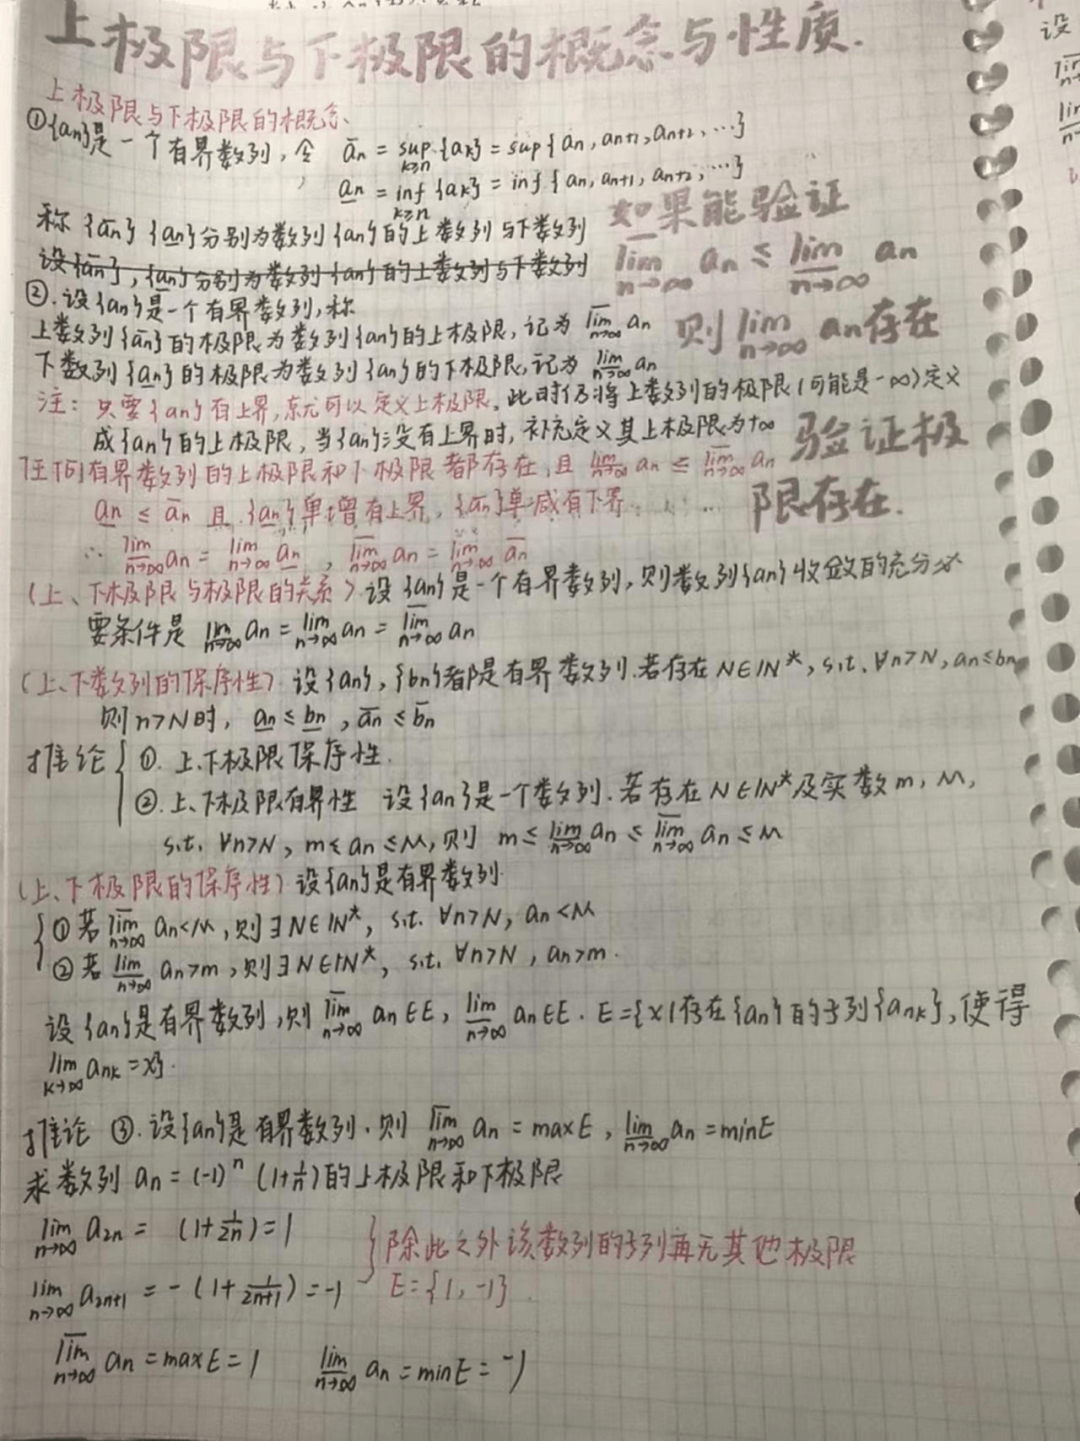 上极限与下极限的概念与性质.
上极限与下极限的概念、
①{an}是一个有界数列,令 a̅n = sup_{k≥n}{ak} = sup{an, an+1, an+2, …}
a̲n = inf_{k≥n}{ak} = inf{an, an+1, an+2, …}
称{a̅n} {a̲n}分别为数列{an}的上数列与下数列
设{a̅n},{a̲n}分别为数列{an}的上数列与下数列
如果能验证
lim̅_{n→∞} an ≤ lim̲_{n→∞} an
则 lim_{n→∞} an存在
验证极
限存在.
②.设{an}是一个有界数列,称
上数列{a̅n}的极限为数列{an}的上极限,记为 lim̅_{n→∞} an
下数列{a̲n}的极限为数列{an}的下极限,记为 lim̲_{n→∞} an
注: 只要{an}有上界,就可以定义上极限。此时仍将上数列的极限(可能是-∞)定义
成{an}的上极限,当{an}没有上界时,补充定义其上极限为+∞
任何有界数列的上极限和下极限都存在,且 lim̲_{n→∞} an ≤ lim̅_{n→∞} an
a̲n ≤ a̅n 且{a̲n}单增有上界,{a̅n}单减有下界.
∴ lim̲_{n→∞} an = lim_{n→∞} a̲n , lim̅_{n→∞} an = lim_{n→∞} a̅n
(上、下极限与极限的关系)设{an}是一个有界数列,则数列{an}收敛的充分必
要条件是 lim̲_{n→∞} an = lim_{n→∞} an = lim̅_{n→∞} an
(上、下数列的保序性) 设{an},{bn}都是有界数列.若存在N∈ℕ*, s.t. ∀n>N, an≤bn
则n>N时, a̲n ≤ b̲n , a̅n ≤ b̅n
推论 { ①. 上.下极限保序性.
②.上、下极限有界性 设{an}是一个数列.若存在N∈ℕ*及实数m, M,
s.t. ∀n>N, m≤an≤M,则 m ≤ lim̲_{n→∞} an ≤ lim̅_{n→∞} an ≤ M
(上、下极限的保序性)设{an}是有界数列.
{ ①若 lim̅_{n→∞} an<M,则∃N∈ℕ*, s.t. ∀n>N, an<M
②若 lim̲_{n→∞} an>m,则∃N∈ℕ*, s.t. ∀n>N, an>m.
设{an}是有界数列,则 lim̅_{n→∞} an∈E, lim̲_{n→∞} an∈E. E={x|存在{an}的子列{ank},使得
lim_{k→∞} ank=x}.
推论 ③.设{an}是有界数列.则 lim̅_{n→∞} an = maxE, lim̲_{n→∞} an = minE
求数列 an = (-1)^n (1+1/n)的上极限和下极限
lim_{n→∞} a2n = (1+1/2n)=1
} 除此之外该数列的子列再无其他极限
lim_{n→∞} a2n+1 = -(1+1/(2n+1))=-1
E={1, -1}.
lim̅_{n→∞} an = maxE = 1 lim̲_{n→∞} an = minE = -1
设